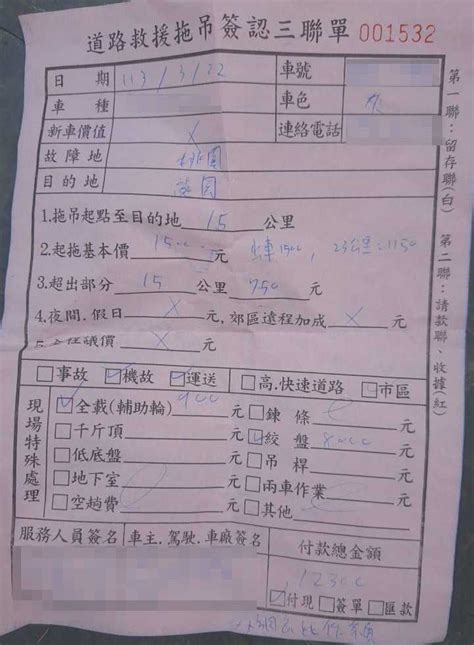 道路救援拖吊簽認三聯單 001532
日期 113/3/22 車號
車種 車色
新車價值 X 連絡電話
故障地 桃園
目的地
1.拖吊起點至目的地 15 公里
2.起拖基本價 1500 元
3.超出部分 15 公里 750 元
4.夜間.假日 X 元,郊區遠程加成 X 元
元
□事故 ☑機故 ☑運送 □高.快速道路 ☑市區
現場特殊處理
☑全載(輔助輪) 900 元 □鍊條 元
□千斤頂 元 ☑絞盤 元
□低底盤 元 □吊桿 元
□地下室 元 □兩車作業 元
□空趟費 元 □其他
服務人員簽名 車主.駕駛.車廠簽名 付款總金額
☑付現 □簽單 □匯款
第一聯:留存聯(白) 第二聯:請款聯、收據(紅)